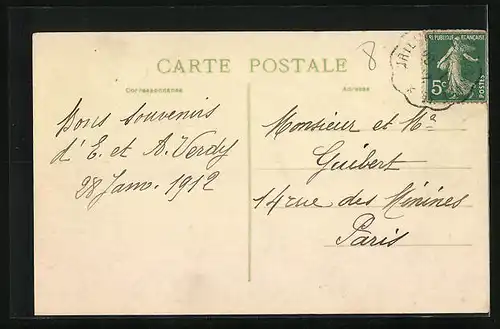 8
RÉPUBLIQUE FRANÇAISE
5c
POSTES
CARTE POSTALE
Correspondance
Adresse
Bons souvenirs
d'E. et A. Verdy
28 Janv. 1912
Monsieur et Ma
Guibert
14 rue des Minines
Paris